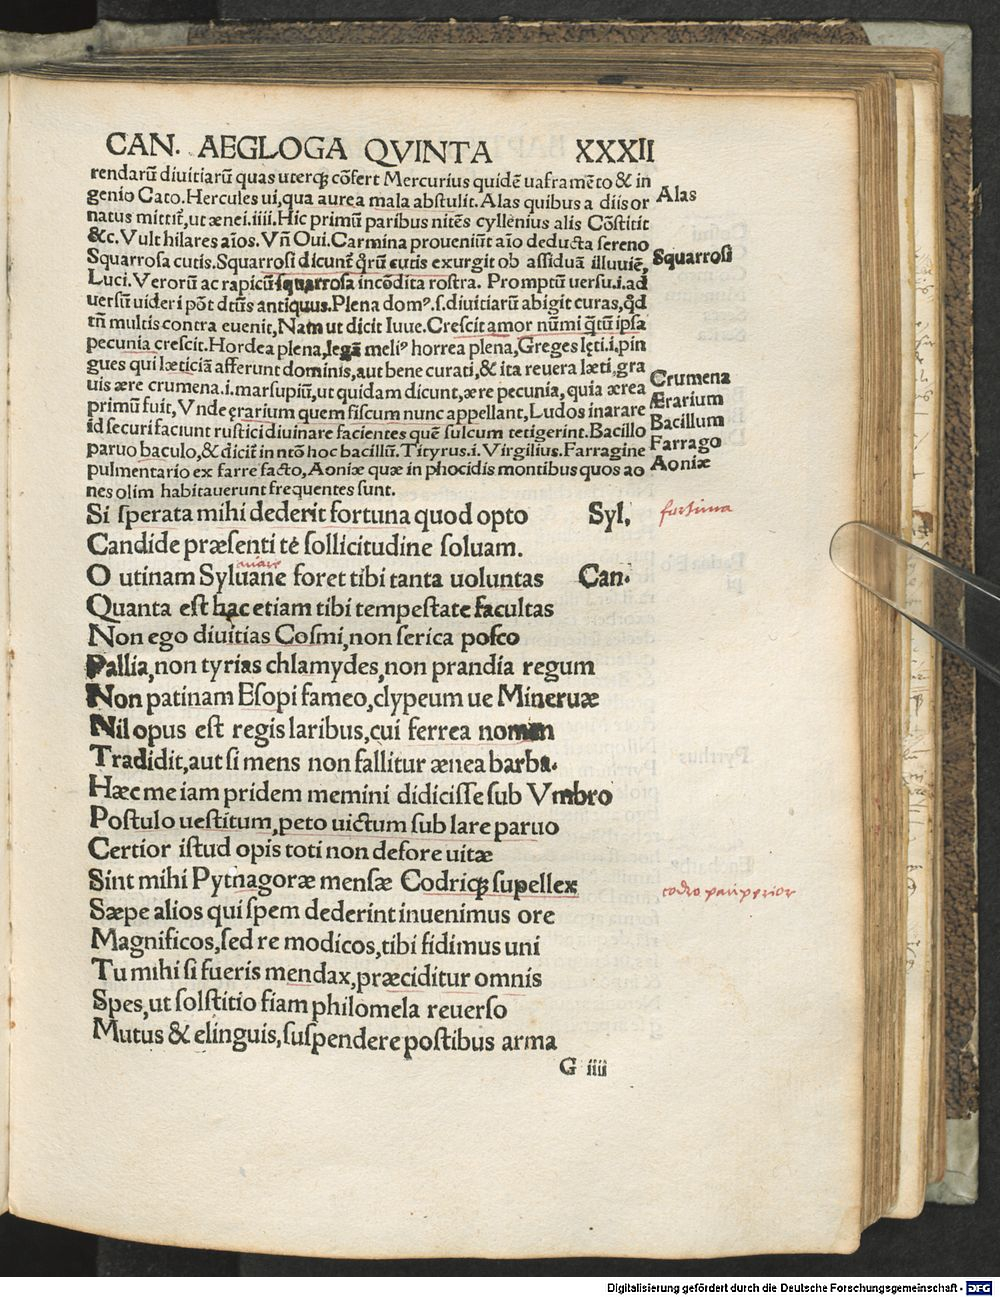 CAN. AEGLOGA QVINTA XXXII
rendarū diuitiarū quas uterq; cōfert Mercurius quidē uaframēto & in
genio Cato. Hercules ui, qua aurea mala abstulit. Alas quibus a diis or Alas
natus mittit̄, ut ænei. iiii. Hic primū paribus nitēs cyllenius alis Cōstitit
&c. Vult hilares aīos. Vñ Oui. Carmina proueniūt aīo deducta sereno
Squarrosa cutis. Squarrosi dicunt̄ q̄rū cutis exurgit ob assiduā illuuiē, Squarrosi
Luci. Verorū ac rapicū squarrosa incōdita rostra. Promptū uersu .i. ad
uersū uideri pōt dctūs antiquus. Plena domꝰ .s. diuitiarū abigit curas, qd̄
tñ multis contra euenit, Nam ut dicit Iuue. Crescit amor nūmi q̄tū ipsa
pecunia crescit. Hordea plena, legā meliꝰ horrea plena, Greges lęti .i. pin
gues qui læticiā afferunt dominis, aut bene curati, & ita reuera læti, gra
uis ære crumena .i. marsupiū, ut quidam dicunt, ære pecunia, quia ærea Crumena
primū fuit, Vnde ęrarium quem fiscum nunc appellant, Ludos inarare Ærarium
id securi faciunt rustici diuinare facientes quē sulcum tetigerint. Bacillo Bacillum
paruo baculo, & dicit̄ in ntō hoc bacillū. Tityrus .i. Virgilius. Farragine Farrago
pulmentario ex farre facto, Aoniæ quæ in phocidis montibus quos ao Aoniæ
nes olim habitauerunt frequentes sunt.
Si sperata mihi dederit fortuna quod opto Syl. fortuna
Candide præsenti té sollicitudine soluam.
O utinam Syluane foret tibi tanta uoluntas Can.
Quanta est hac etiam tibi tempestate facultas
Non ego diuitias Cosmi, non serica posco
Pallia, non tyrias chlamydes, non prandia regum
Non patinam Esopi fameo, clypeum ue Mineruæ
Nil opus est regis laribus, cui ferrea nomen
Tradidit, aut si mens non fallitur ænea barba.
Hæc me iam pridem memini didicisse sub Vmbro
Postulo uestitum, peto uictum sub lare paruo
Certior istud opis toti non defore uitæ
Sint mihi Pytnagoræ mensæ Codriq; supellex codro pauperior
Sæpe alios qui spem dederint inuenimus ore
Magnificos, sed re modicos, tibi fidimus uni
Tu mihi si fueris mendax, præciditur omnis
Spes, ut solstitio fiam philomela reuerso
Mutus & elinguis, suspendere postibus arma
G iiii
Digitalisierung gefördert durch die Deutsche Forschungsgemeinschaft - DFG